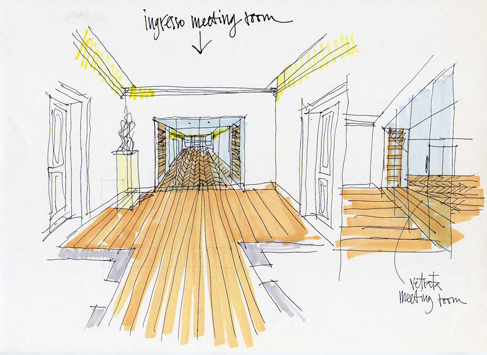 ingresso meeting room
vetrata
meeting room